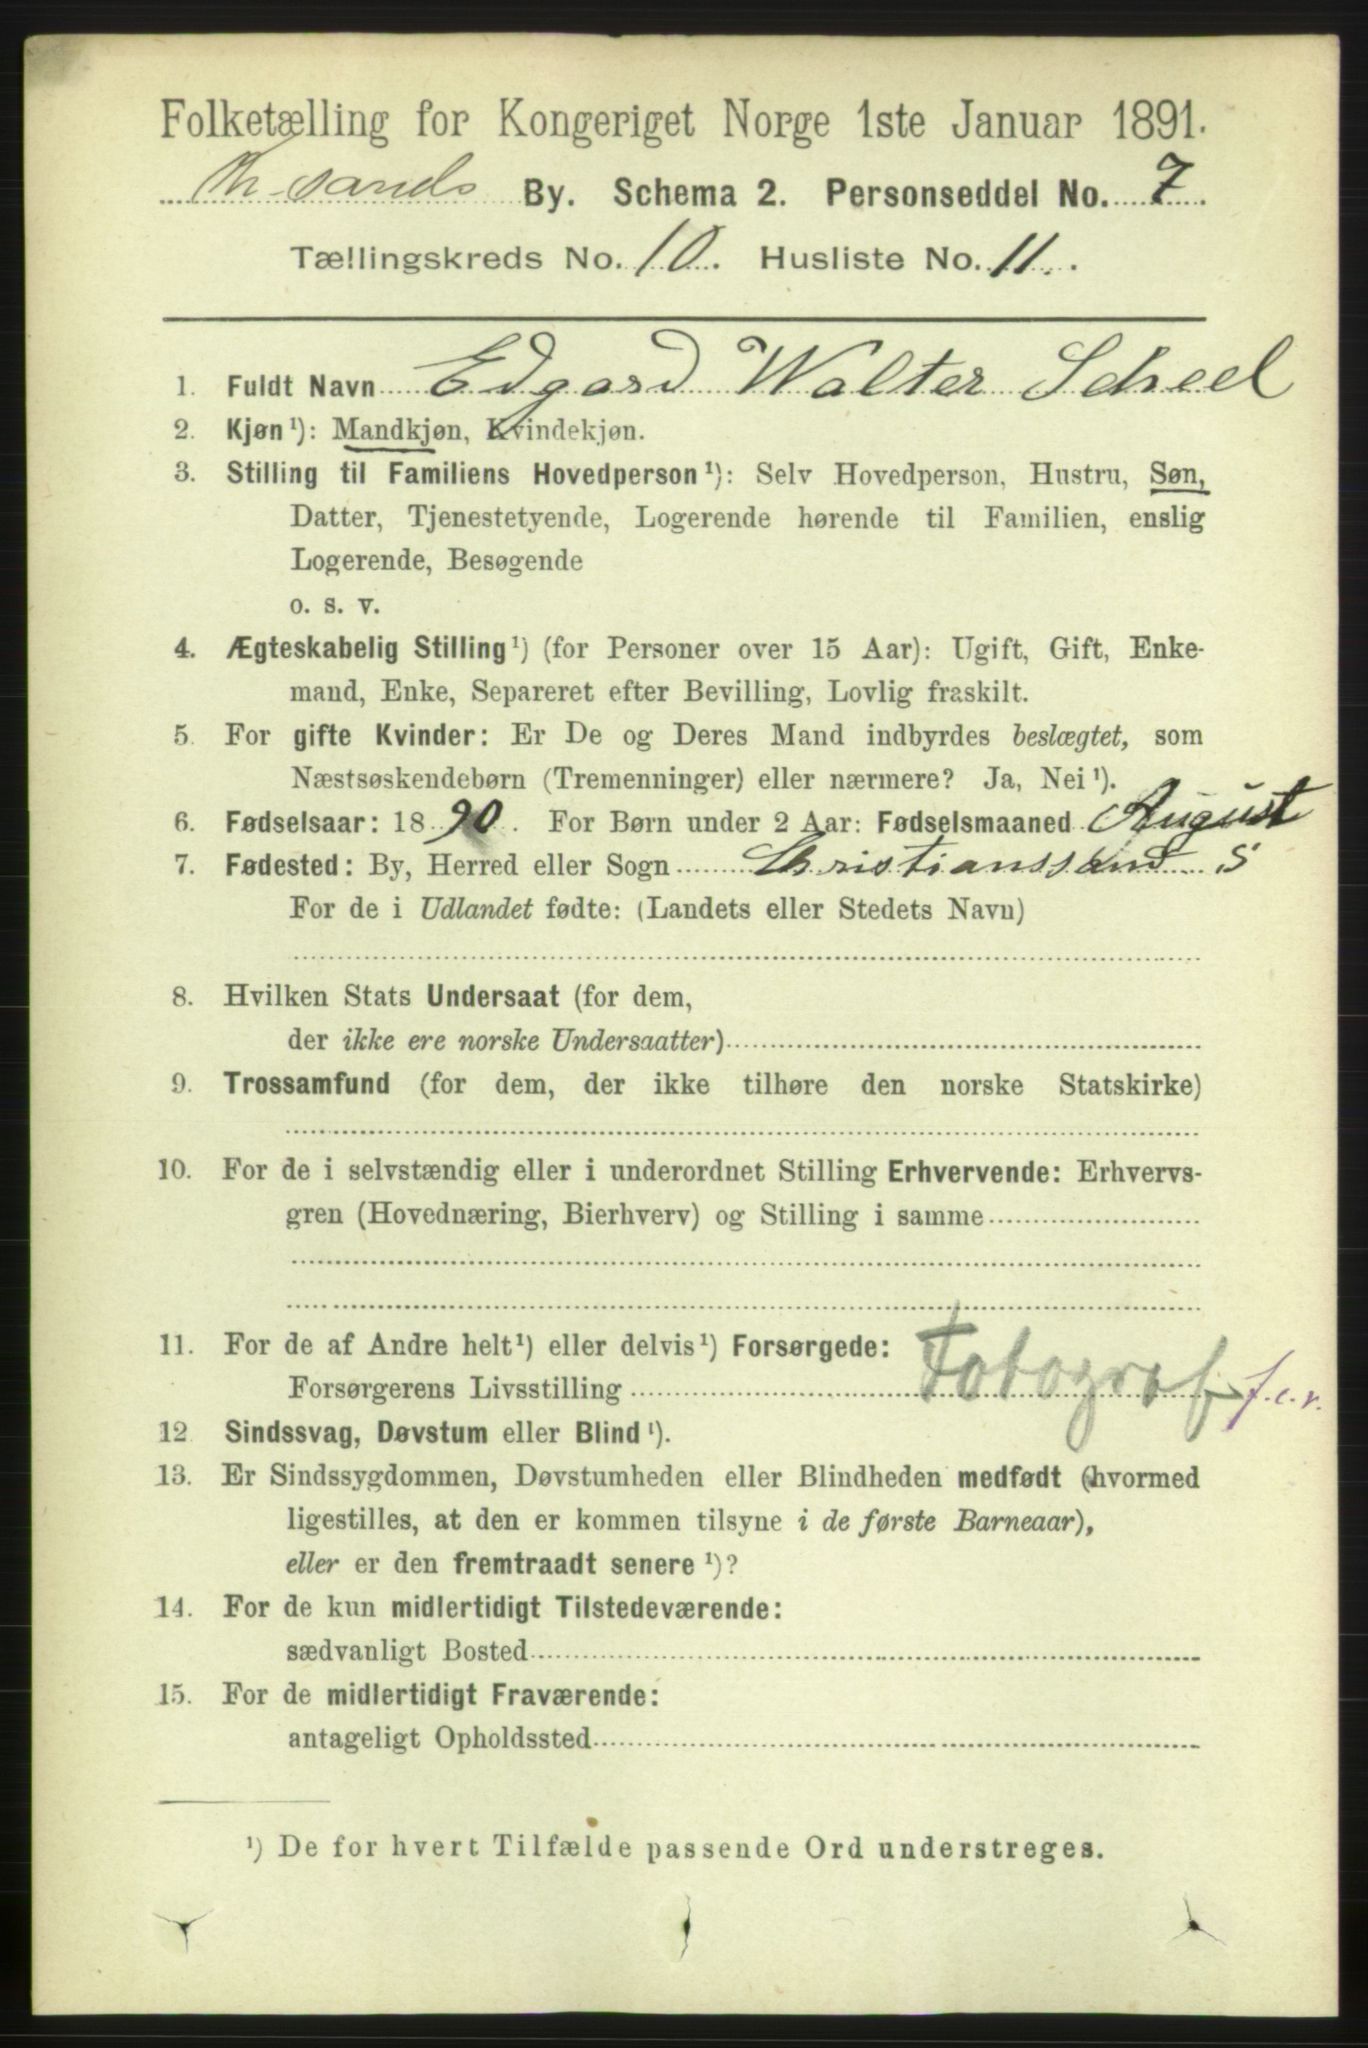 Folketælling for Kongeriget Norge 1ste Januar 1891.
Chr.sands By. Schema 2. Personseddel No. 7.
Tællingskreds No. 10. Husliste No. 11.
1. Fuldt Navn Edgard Walter Scheel
2. Kjøn ¹): Mandkjøn, Kvindekjøn.
3. Stilling til Familiens Hovedperson ¹): Selv Hovedperson, Hustru, Søn,
Datter, Tjenestetyende, Logerende hørende til Familien, enslig
Logerende, Besøgende
o. s. v.
4. Ægteskabelig Stilling ¹) (for Personer over 15 Aar): Ugift, Gift, Enke-
mand, Enke, Separeret efter Bevilling, Lovlig fraskilt.
5. For gifte Kvinder: Er De og Deres Mand indbyrdes beslægtet, som
Næstsøskendebørn (Tremenninger) eller nærmere? Ja, Nei ¹).
6. Fødselsaar: 1890. For Børn under 2 Aar: Fødselsmaaned August
7. Fødested: By, Herred eller Sogn Christianssand S
For de i Udlandet fødte: (Landets eller Stedets Navn)
8. Hvilken Stats Undersaat (for dem,
der ikke ere norske Undersaatter)
9. Trossamfund (for dem, der ikke tilhøre den norske Statskirke)
10. For de i selvstændig eller i underordnet Stilling Erhvervende: Erhvervs-
gren (Hovednæring, Bierhverv) og Stilling i samme
11. For de af Andre helt ¹) eller delvis ¹) Forsørgede:
Forsørgerens Livsstilling Fotograf f.e.r.
12. Sindssvag, Døvstum eller Blind ¹).
13. Er Sindssygdommen, Døvstumheden eller Blindheden medfødt (hvormed
ligestilles, at den er kommen tilsyne i de første Barneaar),
eller er den fremtraadt senere ¹)?
14. For de kun midlertidigt Tilstedeværende:
sædvanligt Bosted
15. For de midlertidigt Fraværende:
antageligt Opholdssted
¹) De for hvert Tilfælde passende Ord understreges.